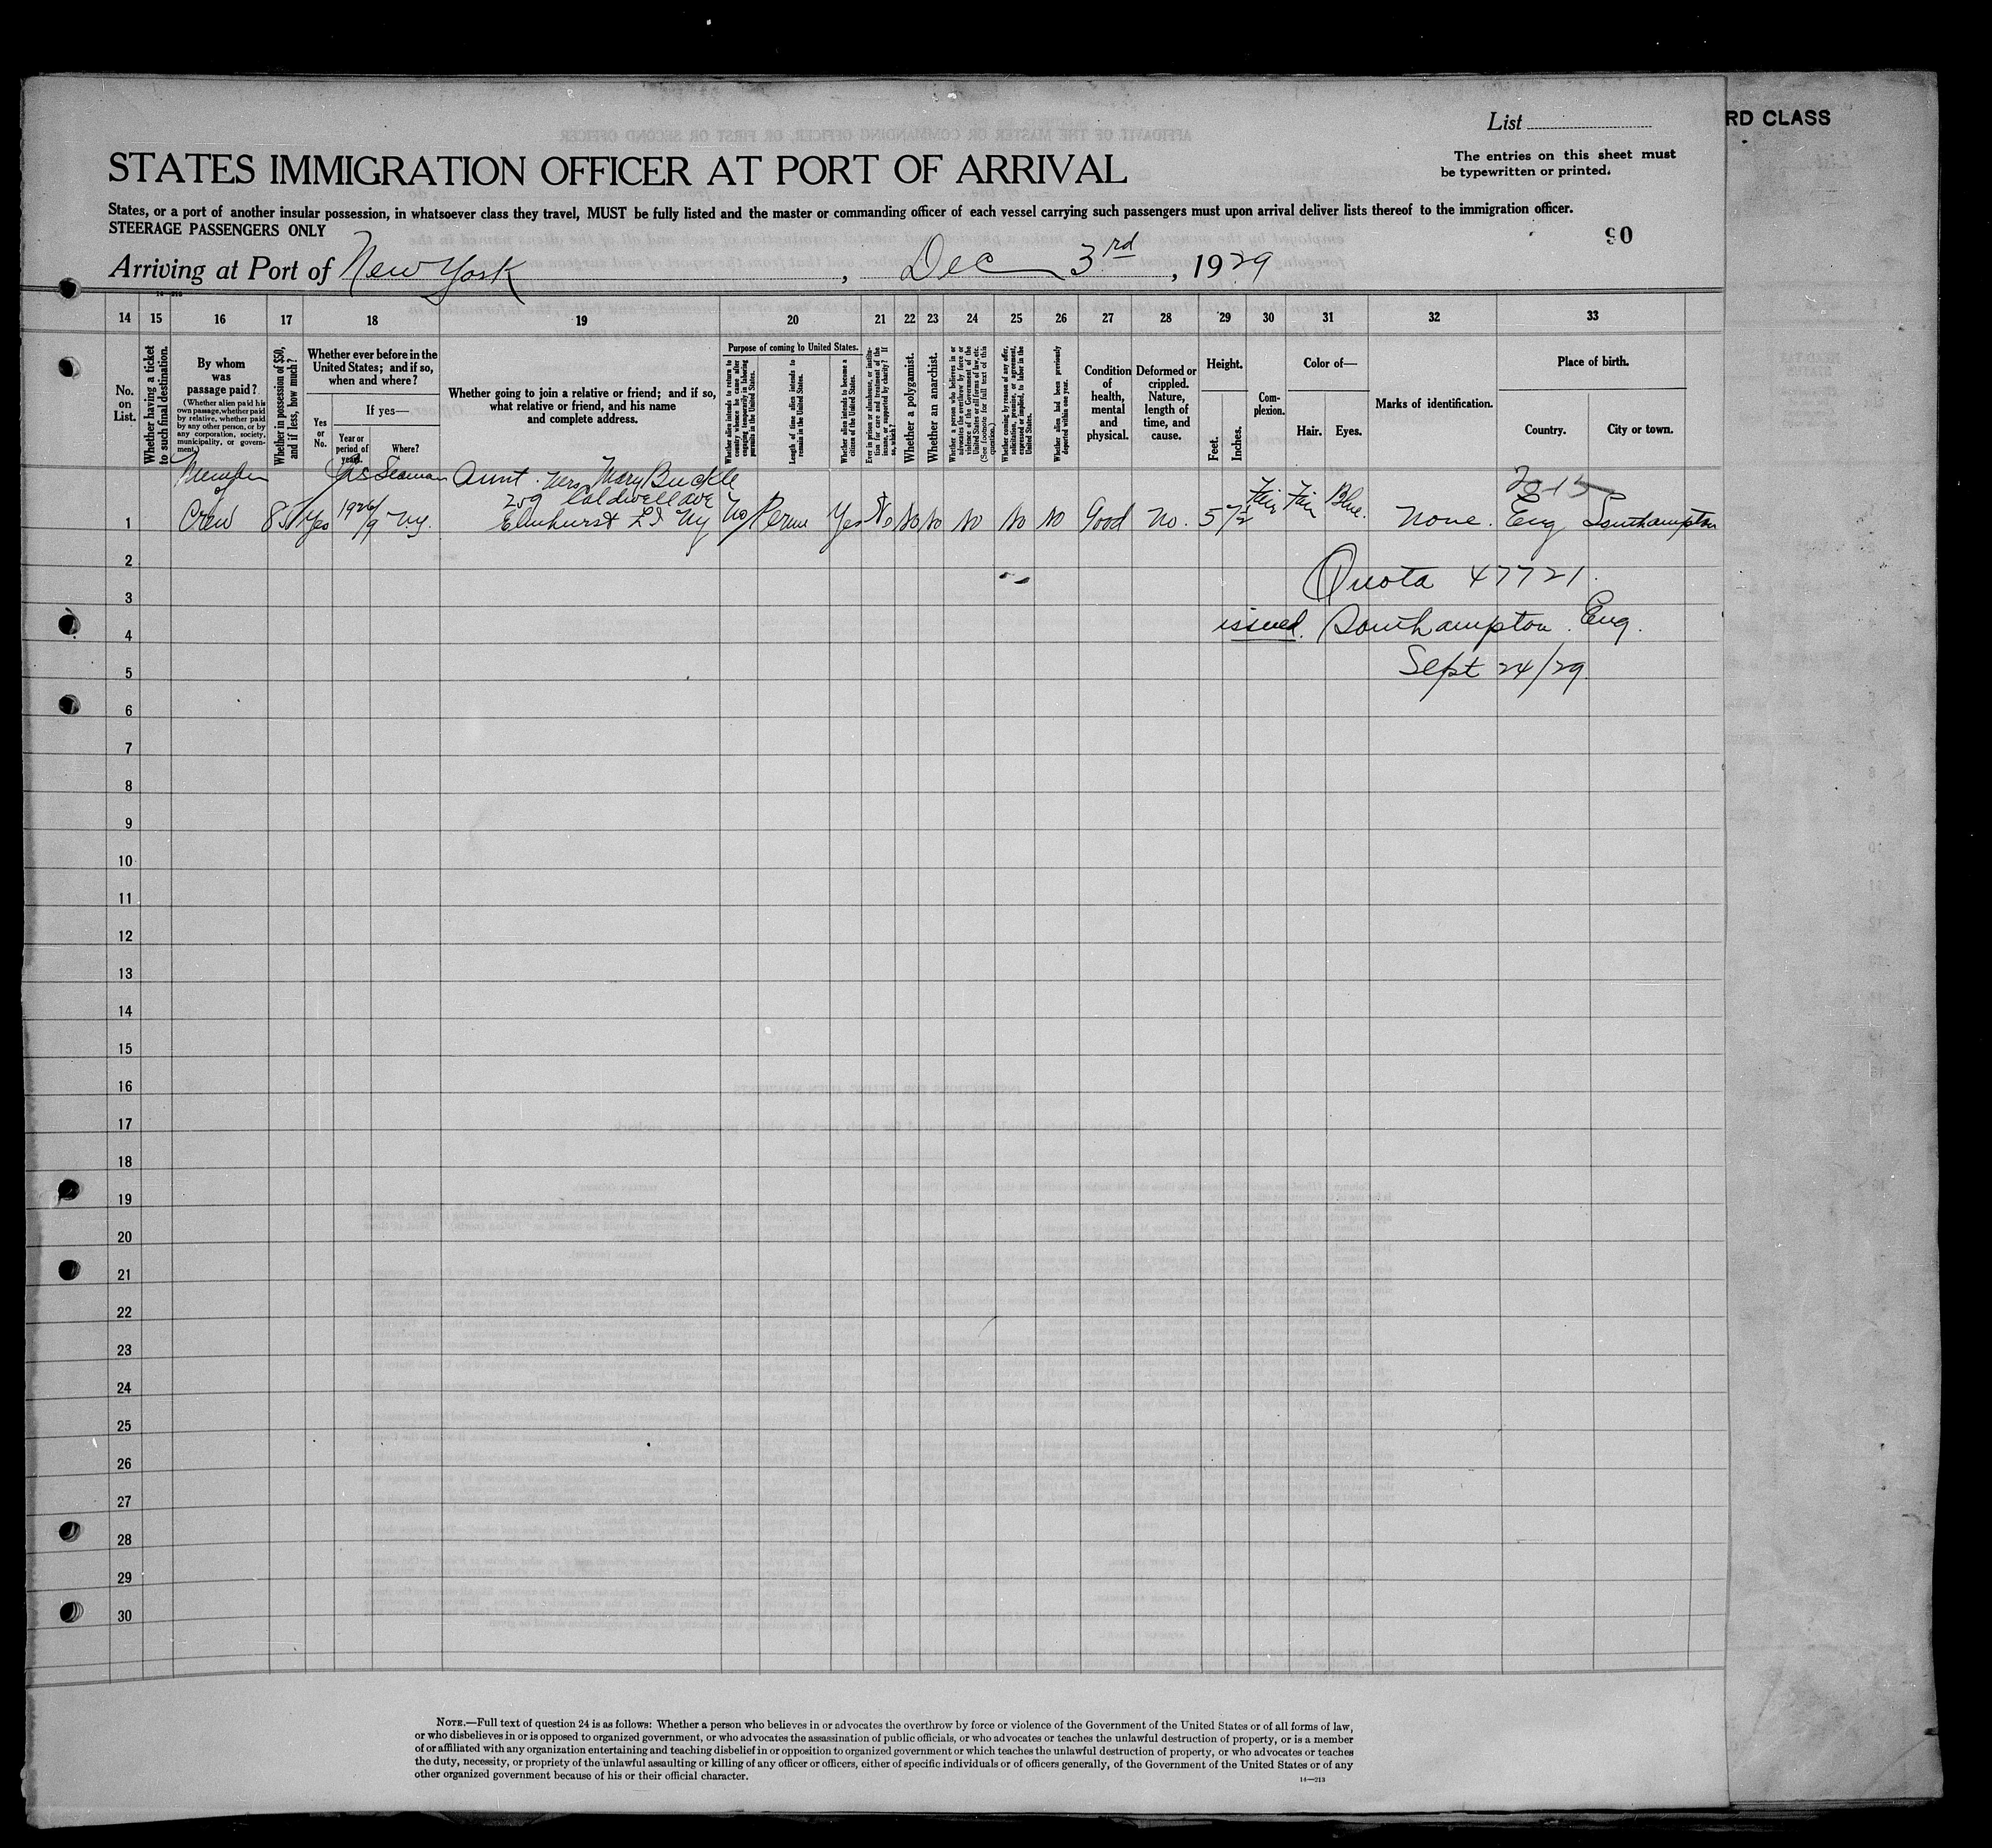 RD CLASS
List
STATES IMMIGRATION OFFICER AT PORT OF ARRIVAL
The entries on this sheet must
be typewritten or printed.
States, or a port of another insular possession, in whatsoever class they travel, MUST be fully listed and the master or commanding officer of each vessel carrying such passengers must upon arrival deliver lists thereof to the immigration officer.
STEERAGE PASSENGERS ONLY
90
Arriving at Port of New York, Dec 3rd, 1929
14 15 16 17 18 19 20 21 22 23 24 25 26 27 28 29 30 31 32 33
No. on List.
Whether having a ticket to such final destination.
By whom was passage paid?
(Whether alien paid his own passage, whether paid by relative, whether paid by any other person, or by any corporation, society, municipality, or government.)
Whether in possession of $50, and if less, how much?
Whether ever before in the United States; and if so, when and where?
Yes or No.
If yes—
Year or period of years.
Where?
Whether going to join a relative or friend; and if so, what relative or friend, and his name and complete address.
Purpose of coming to United States.
Whether alien intends to return to country whence he came after engaging temporarily in laboring pursuits in the United States.
Length of time alien intends to remain in the United States.
Whether alien intends to become a citizen of the United States.
Ever in prison or almshouse, or institution for care and treatment of the insane, or supported by charity? If so, which?
Whether a polygamist.
Whether an anarchist.
Whether a person who believes in or advocates the overthrow by force or violence of the Government of the United States or all forms of law, etc. (See footnote for full text of this question.)
Whether coming by reason of any offer, solicitation, promise, or agreement, expressed or implied, to labor in the United States.
Whether alien had been previously deported within one year.
Condition of health, mental and physical.
Deformed or crippled. Nature, length of time, and cause.
Height.
Feet.
Inches.
Complexion.
Color of—
Hair.
Eyes.
Marks of identification.
Place of birth.
Country.
City or town.
Member Seaman Aunt. Mrs Mary Buckle
of 259 Caldwell ave Fair Fair Blue.
1 Crew Yes NY. Elmhurst LI NY No Perm Yes No No No No No No Good No. 5 7½ None. Eng Southampton
2 Quota 47721.
3
4 issued. Southampton. Eng.
5 Sept 24/29.
6
7
8
9
10
11
12
13
14
15
16
17
18
19
20
21
22
23
24
25
26
27
28
29
30
NOTE.—Full text of question 24 is as follows: Whether a person who believes in or advocates the overthrow by force or violence of the Government of the United States or of all forms of law,
or who disbelieves in or is opposed to organized government, or who advocates the assassination of public officials, or who advocates or teaches the unlawful destruction of property, or is a member
of or affiliated with any organization entertaining and teaching disbelief in or opposition to organized government or which teaches the unlawful destruction of property, or who advocates or teaches
the duty, necessity, or propriety of the unlawful assaulting or killing of any officer or officers, either of specific individuals or of officers generally, of the Government of the United States or of any
other organized government because of his or their official character.
14—213